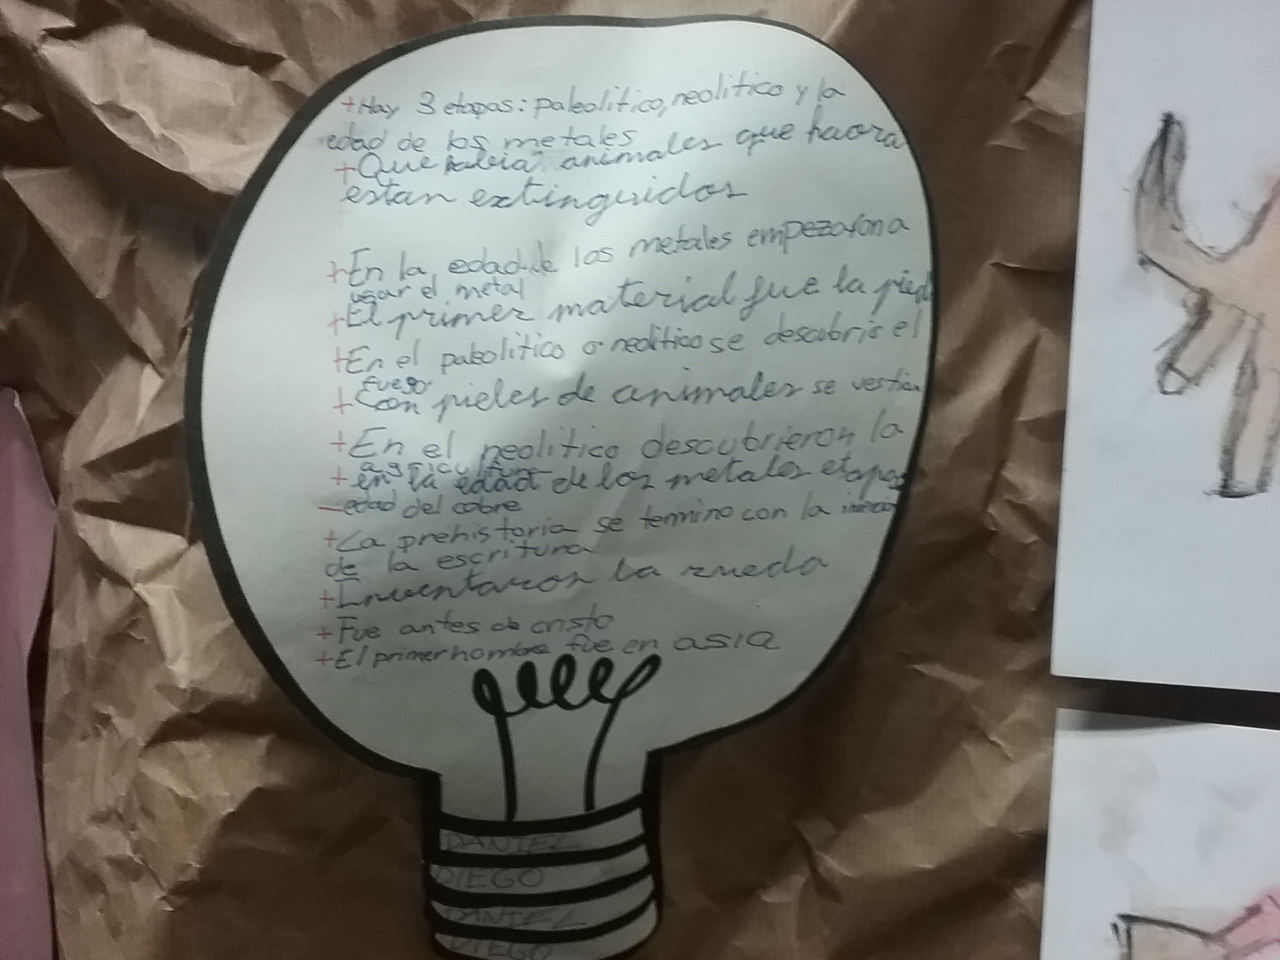 +Hay 3 etapas: paleolitico, neolitico y la
edad de los metales
+Que habia animales que haora
estan extinguidos
+En la edad de los metales empezaron a
usar el metal
+El primer material fue la pied
+En el paleolitico o neolitico se descubrio el
fuego
+Con pieles de animales se vestian
+En el neolitico descubrieron la
agricultura
+en la edad de los metales etapas
-edad del cobre
+La prehistoria se termino con la
de la escritura
+Inventaron la rueda
+Fue antes de cristo
+El primer hombre fue en asia
DANIEL
DIEGO
DANIEL
DIEGO